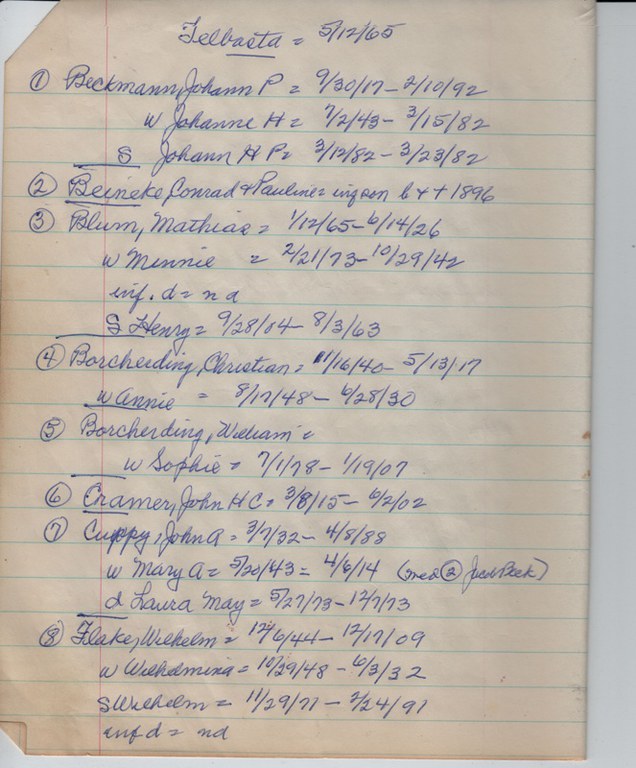 Telbasta = 5/12/65
① Beckmann, Johann P = 9/30/17 - 2/10/92
w Johanne H = 7/2/43 - 3/15/82
S Johann H P = 3/12/82 - 3/23/82
② Beineke, Conrad & Pauline = inf son b & + 1896
③ Blum, Mathias = 1/12/65 - 6/14/26
w Minnie = 2/21/73 - 10/29/42
inf. d = nd
S Henry = 9/28/04 - 8/3/63
④ Borcherding, Christian = 11/16/40 - 5/13/17
w Annie = 8/17/48 - 6/28/30
⑤ Borcherding, William =
w Sophie = 7/1/78 - 1/19/07
⑥ Cramer, John H C = 3/8/15 - 6/2/02
⑦ Cuppy, John A = 3/7/32 - 4/8/88
w Mary A = 5/20/43 = 4/6/14 (med ② Jacob Beck)
d Laura May = 5/27/73 - 12/7/73
⑧ Flake, Wilhelm = 12/6/44 - 12/17/09
w Wilhelmina = 10/29/48 - 6/3/32
S Wilhelm = 11/29/71 - 2/24/91
inf d = nd